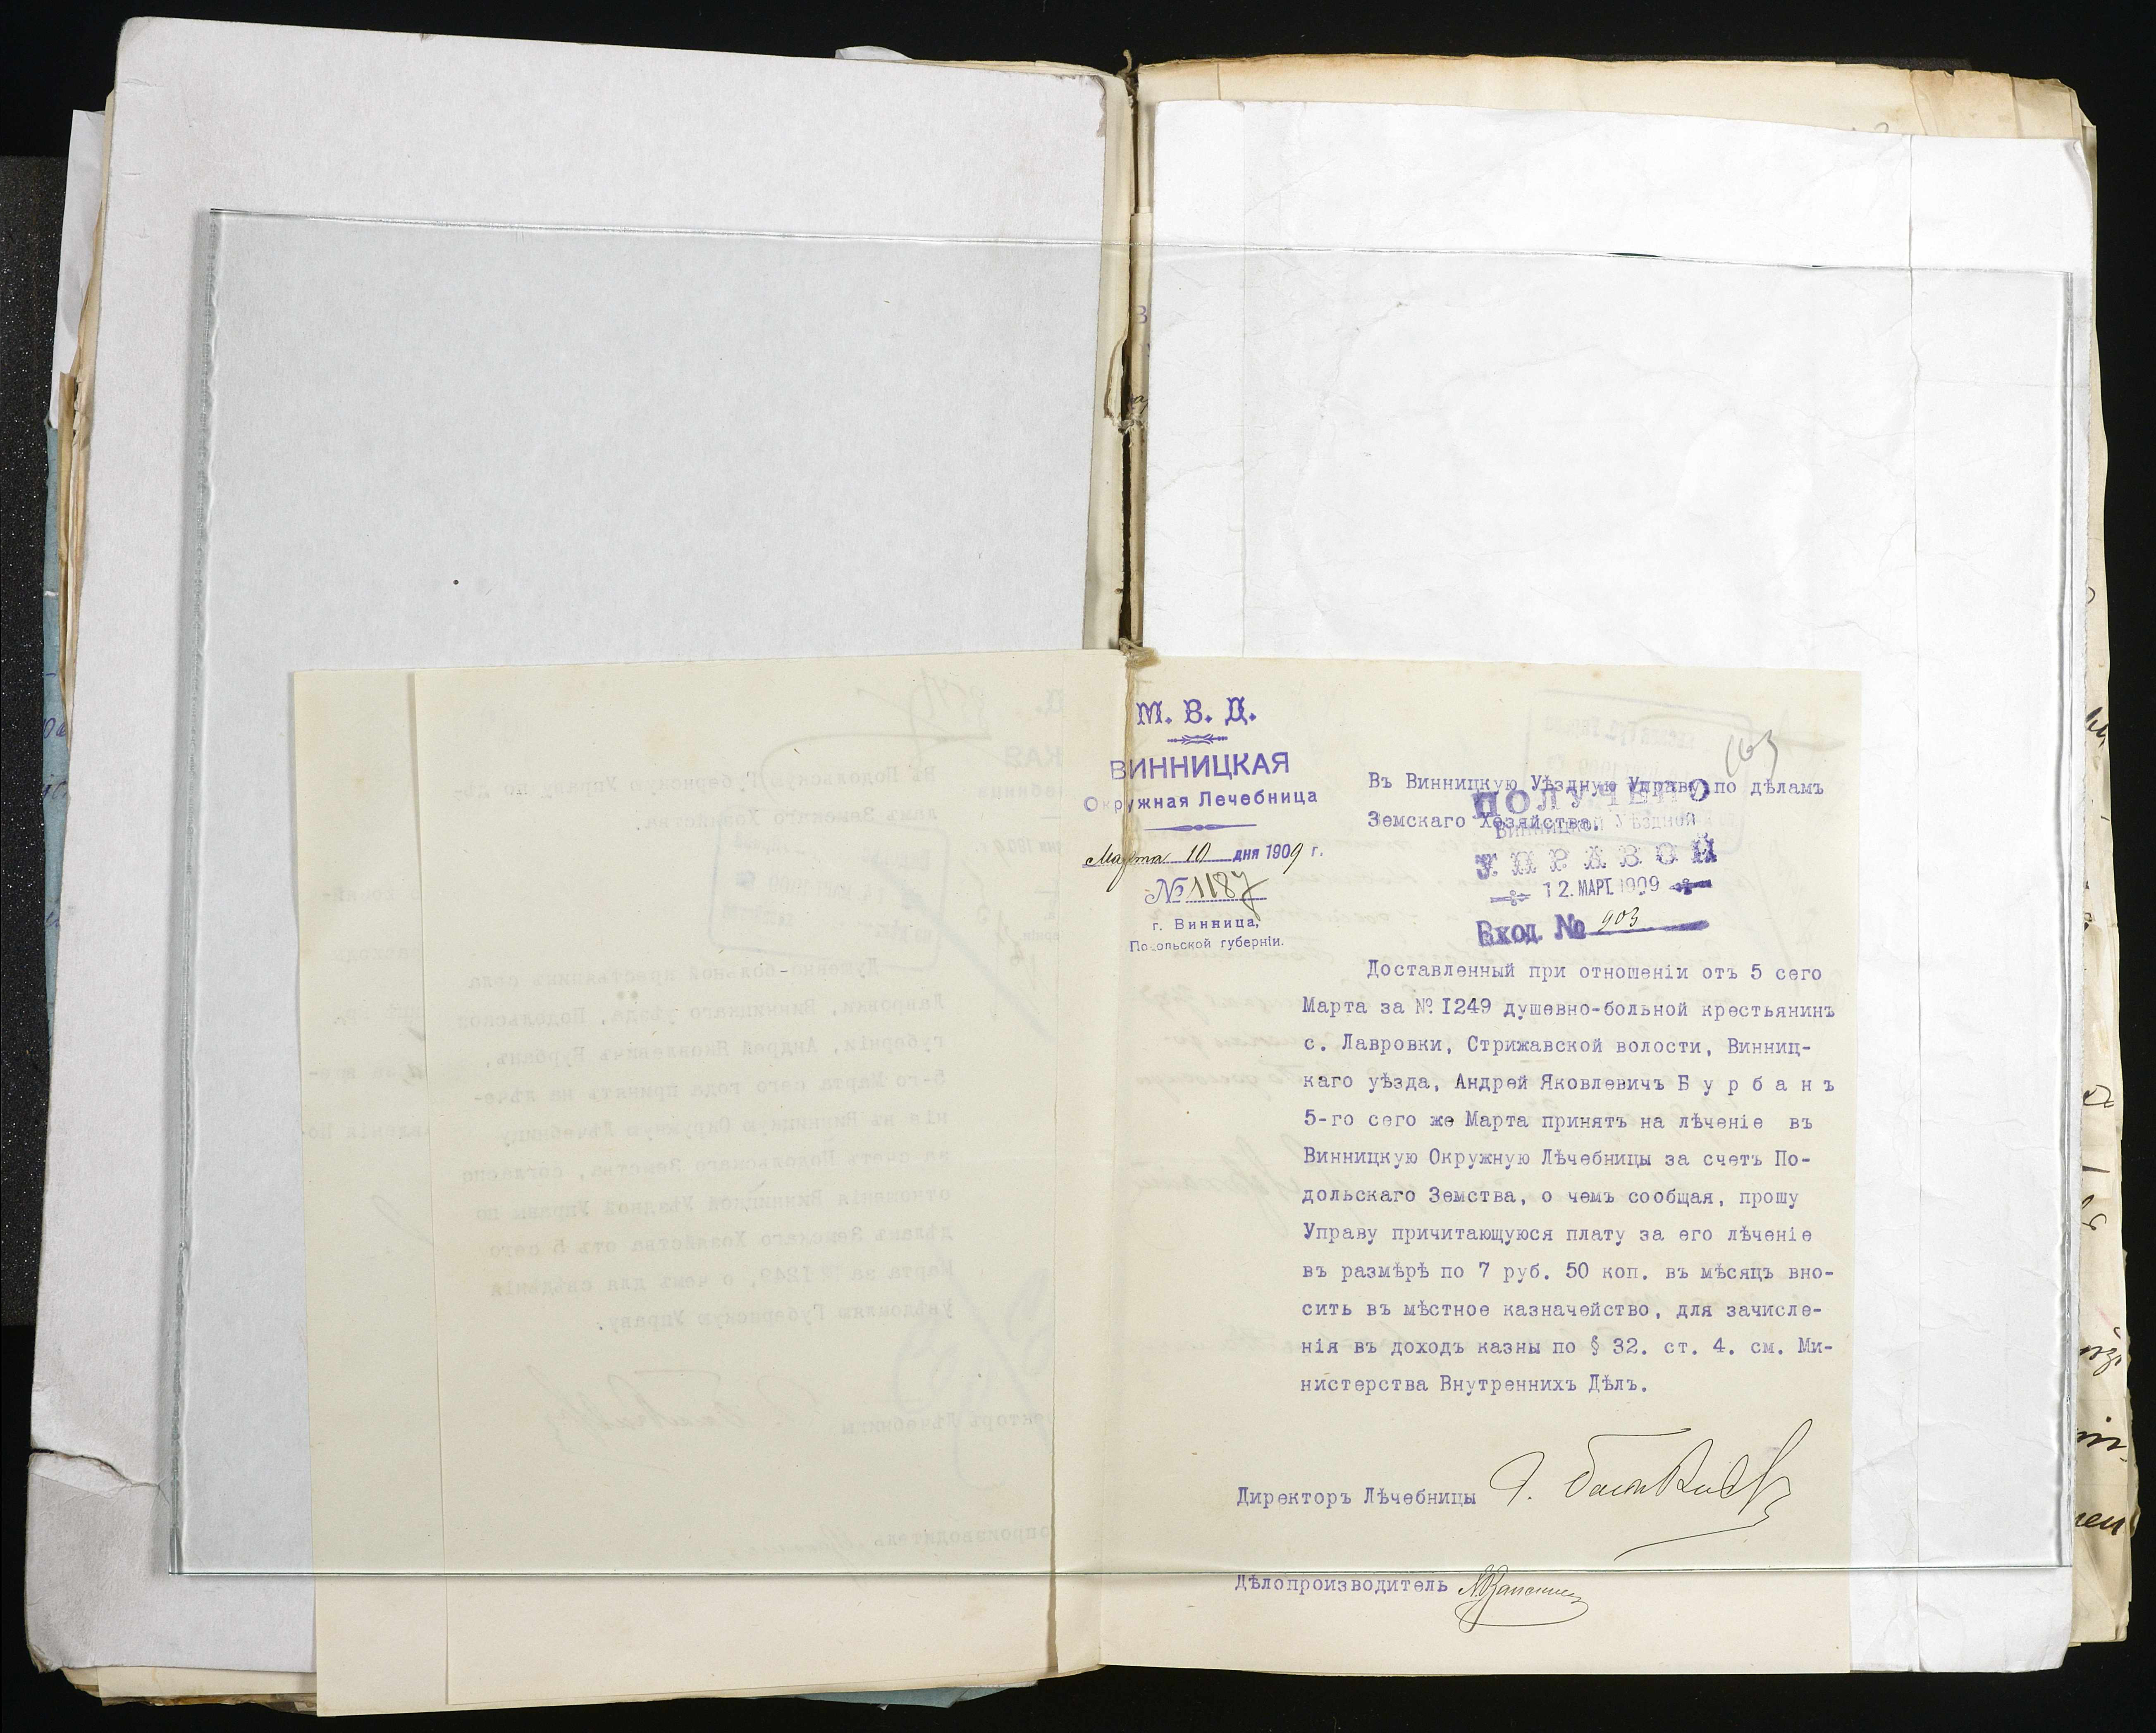 М. В. Д.
ВИННИЦКАЯ
Окружная Лечебница
Марта 10 дня 1909 г.
№ 1187
г. Винница,
Подольской губерніи.
163
Въ Винницкую Уѣздную Управу по дѣламъ
Земскаго Хозяйства.
ПОЛУЧЕНО
Винницкой Уѣздной
УПРАВОЙ
12. МАРТ. 1909
Вход. № 903
Доставленный при отношеніи отъ 5 сего
Марта за № I249 душевно-больной крестьянинъ
с. Лавровки, Стрижавской волости, Винниц-
каго уѣзда, Андрей Яковлевичъ Б у р б а н ъ
5-го сего же Марта принятъ на лѣченіе въ
Винницкую Окружную Лѣчебницы за счетъ По-
дольскаго Земства, о чемъ сообщая, прошу
Управу причитающуюся плату за его лѣченіе
въ размѣрѣ по 7 руб. 50 коп. въ мѣсяцъ вно-
сить въ мѣстное казначейство, для зачисле-
нія въ доходъ казны по § 32. ст. 4. см. Ми-
нистерства Внутреннихъ Дѣлъ.
Директоръ Лѣчебницы
Дѣлопроизводитель